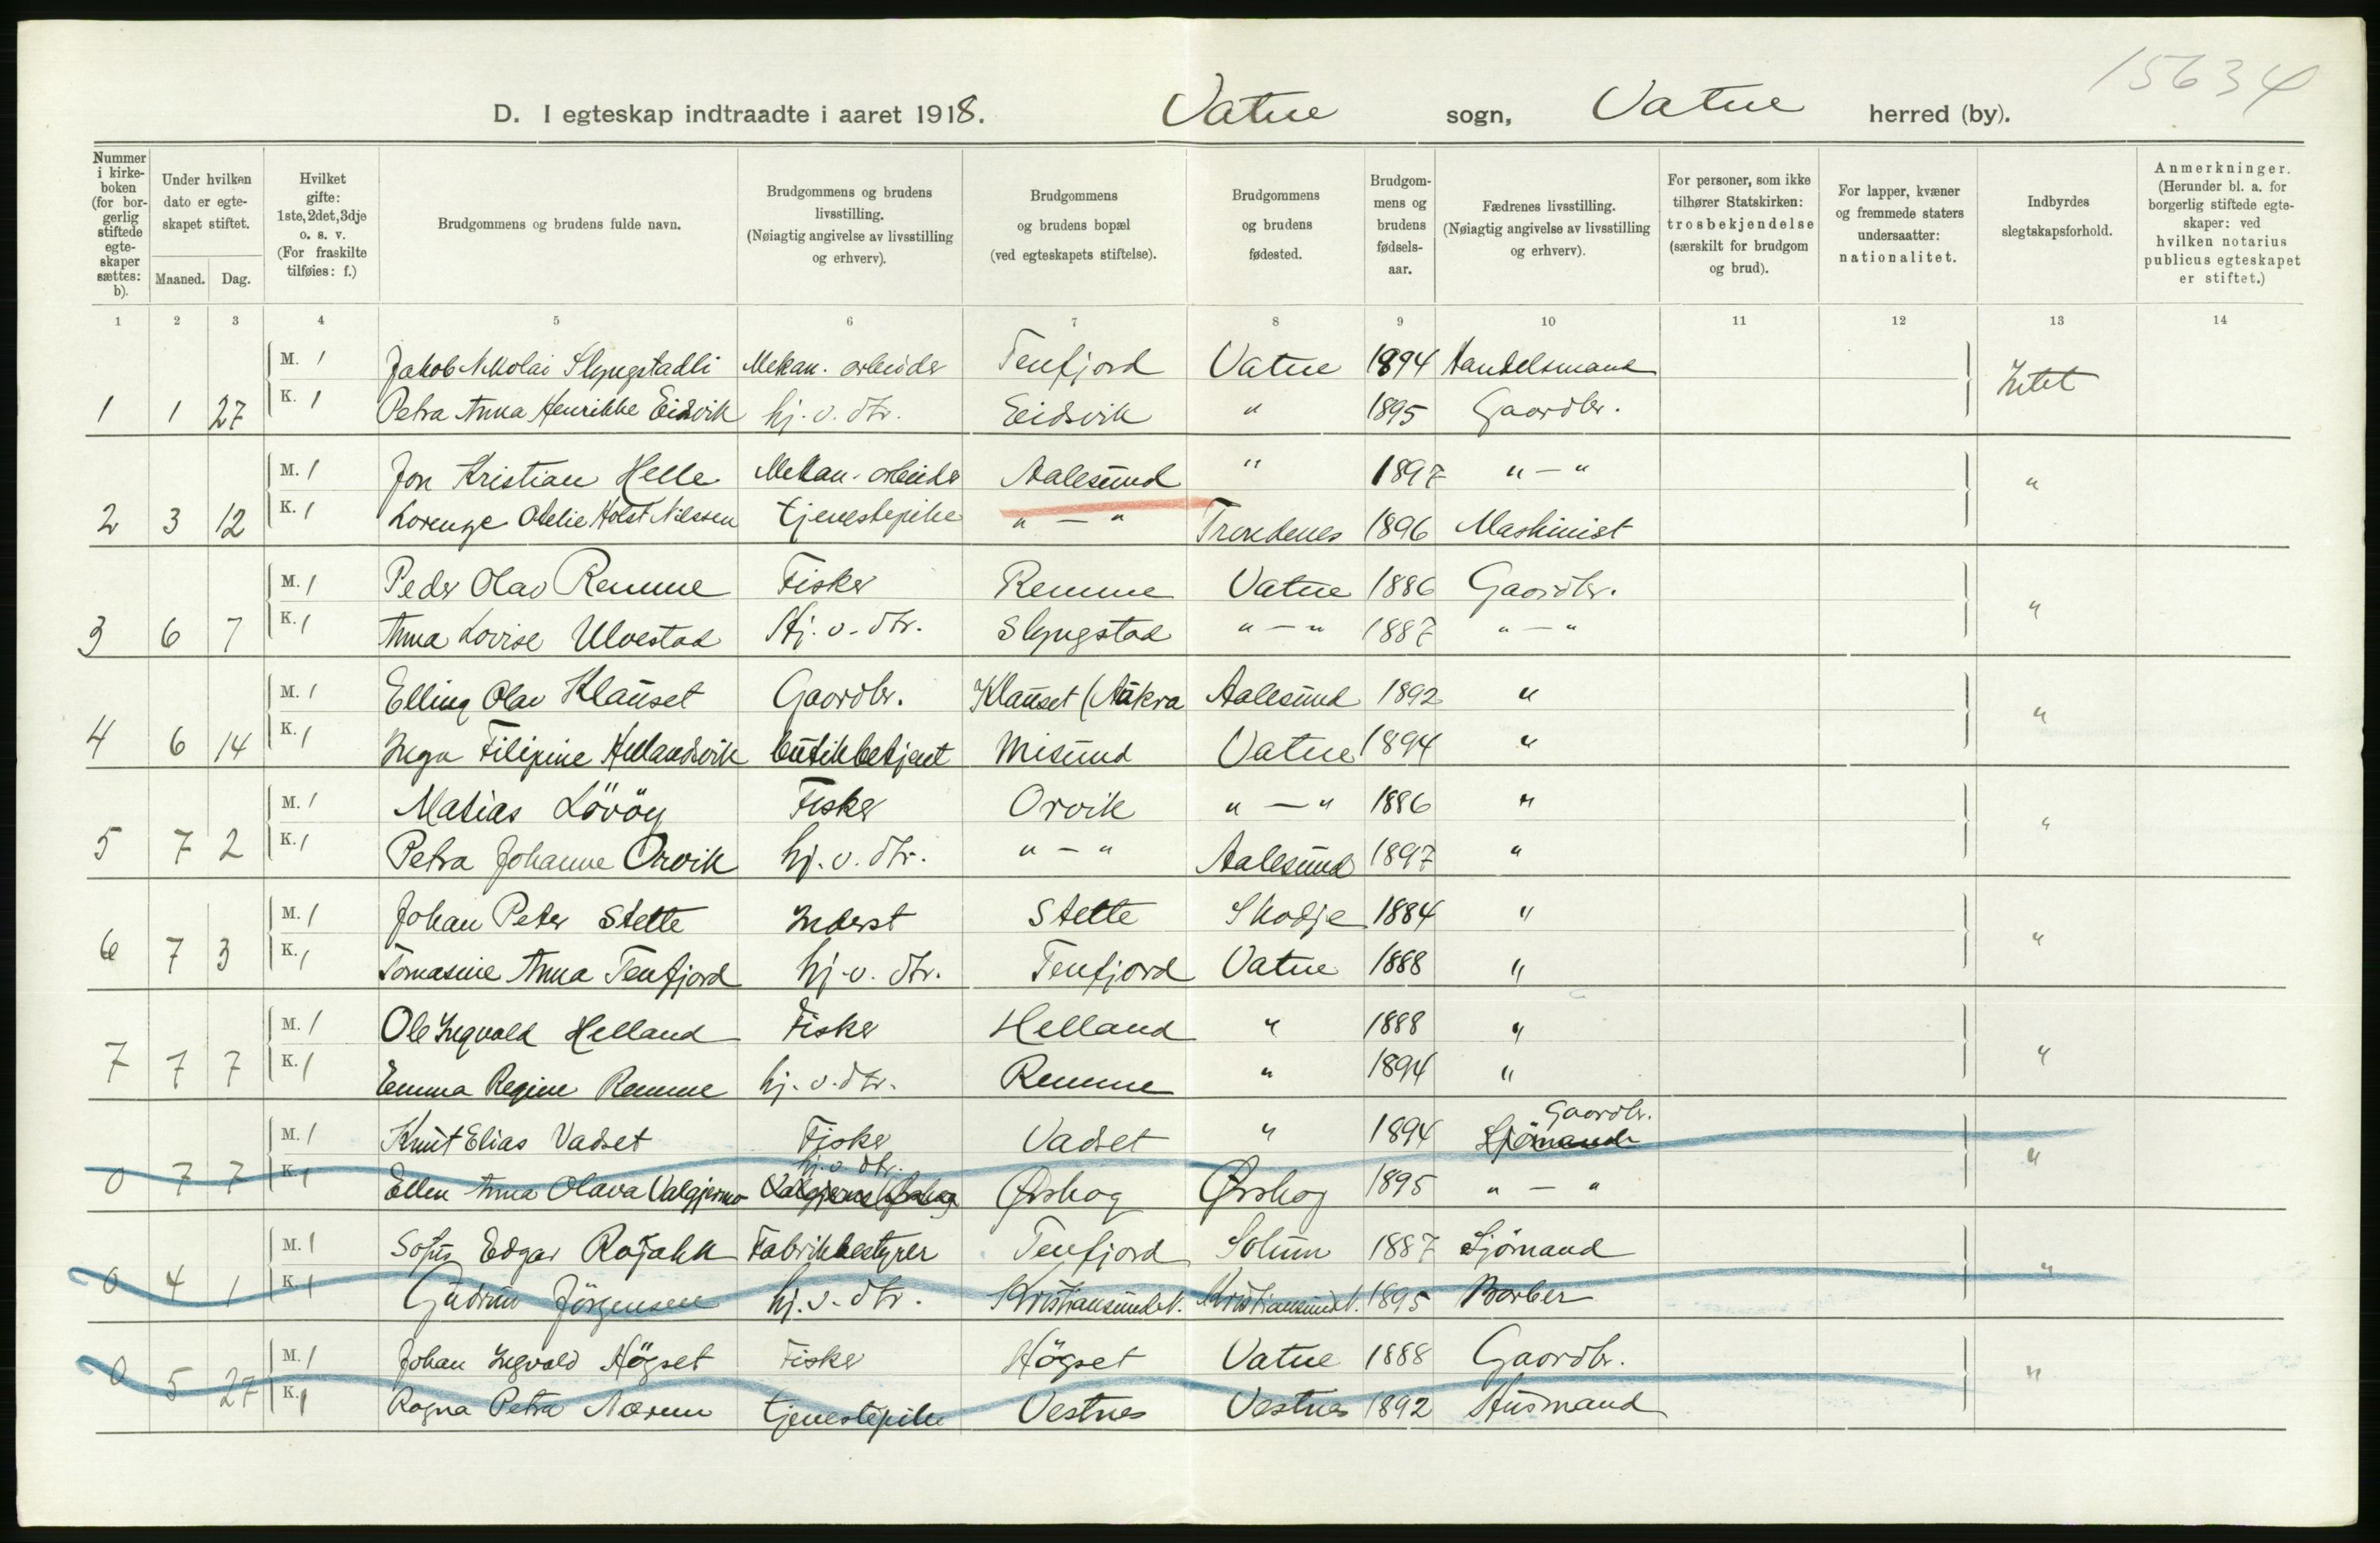 15634
D. I egteskap indtraadte i aaret 1918. Vatne sogn, Vatne herred (by).
Nummer i kirkeboken (for borgerlig stiftede egteskaper sættes: b).
Under hvilken dato er egteskapet stiftet.
Maaned. Dag.
Hvilket gifte: 1ste, 2det, 3dje o. s. v. (For fraskilte tilføies: f.)
Brudgommens og brudens fulde navn.
Brudgommens og brudens livsstilling. (Nøiagtig angivelse av livsstilling og erhverv).
Brudgommens og brudens bopæl (ved egteskapets stiftelse).
Brudgommens og brudens fødested.
Brudgommens og brudens fødselsaar.
Fædrenes livsstilling. (Nøiagtig angivelse av livsstilling og erhverv).
For personer, som ikke tilhører Statskirken: trosbekjendelse (særskilt for brudgom og brud).
For lapper, kvæner og fremmede staters undersaatter: nationalitet.
Indbyrdes slegtskapsforhold.
Anmerkninger. (Herunder bl. a. for borgerlig stiftede egteskaper: ved hvilken notarius publicus egteskapet er stiftet.)
1 2 3 4 5 6 7 8 9 10 11 12 13 14
M. 1 Jakob Nikolai Slyngstadli Mekan. arbeider Tenfjord Vatne 1894 Handelsmand Intet
1 1 27 K. 1 Petra Anna Henrikke Eidsvik hj. v. dtr. Eidsvik " 1895 Gaardbr.
M. 1 Jon Kristian Helle Mekan. arbeider Aalesund " 1897 " — " "
2 3 12 K. 1 Lorenze Otelie Holst Nilssen tjenestepike " — " Trondenes 1896 Maskinist
M. 1 Peder Olav Remme Fisker Remme Vatne 1886 Gaardbr. "
3 6 7 K. 1 Anna Lovise Ulvestad Hj. v. dtr. Slyngstad " — " 1887 " — "
M. 1 Elling Olav Klauset Gaardbr. Klauset (Aakra Aalesund 1892 " "
4 6 14 K. 1 Inga Filipine Hellandsvik butikbetjent Misund Vatne 1894 "
M. 1 Matias Lövöy Fisker Orvik " — " 1886 " "
5 7 2 K. 1 Petra Johanne Orvik hj. v. dtr. " — " Aalesund 1897 "
M. 1 Johan Peter Stette Inderst Stette Skodje 1884 " "
6 7 3 K. 1 Tomasine Anna Tenfjord hj. v. dtr. Tenfjord Vatne 1888 "
M. 1 Ole Ingvald Helland Fisker Helland " 1888 " "
7 7 7 K. 1 Emma Regine Remme hj. v. dtr. Remme " 1894 "
Gaardbr.
M. 1 Knut Elias Vadset Fisker Vadset " 1894 Sjömand "
hj. v. dtr.
0 7 7 K. 1 Ellen Anna Olava Valgjermo Valgjermo Ørskog Ørskog Ørskog 1895 " — "
M. 1 Sofus Edgar Rojahn Fabrikbestyrer Tenfjord Solum 1887 Sjömand "
0 4 1 K. 1 Gudrun Jörgensen hj. v. dtr. Kristiansund N. Kristiansund N. 1895 Barber
M. 1 Johan Ingvald Högset Fisker Högset Vatne 1888 Gaardbr. "
0 5 27 K. 1 Ragna Petra Nærem tjenestepike Vestnes Vestnes 1892 Husmand